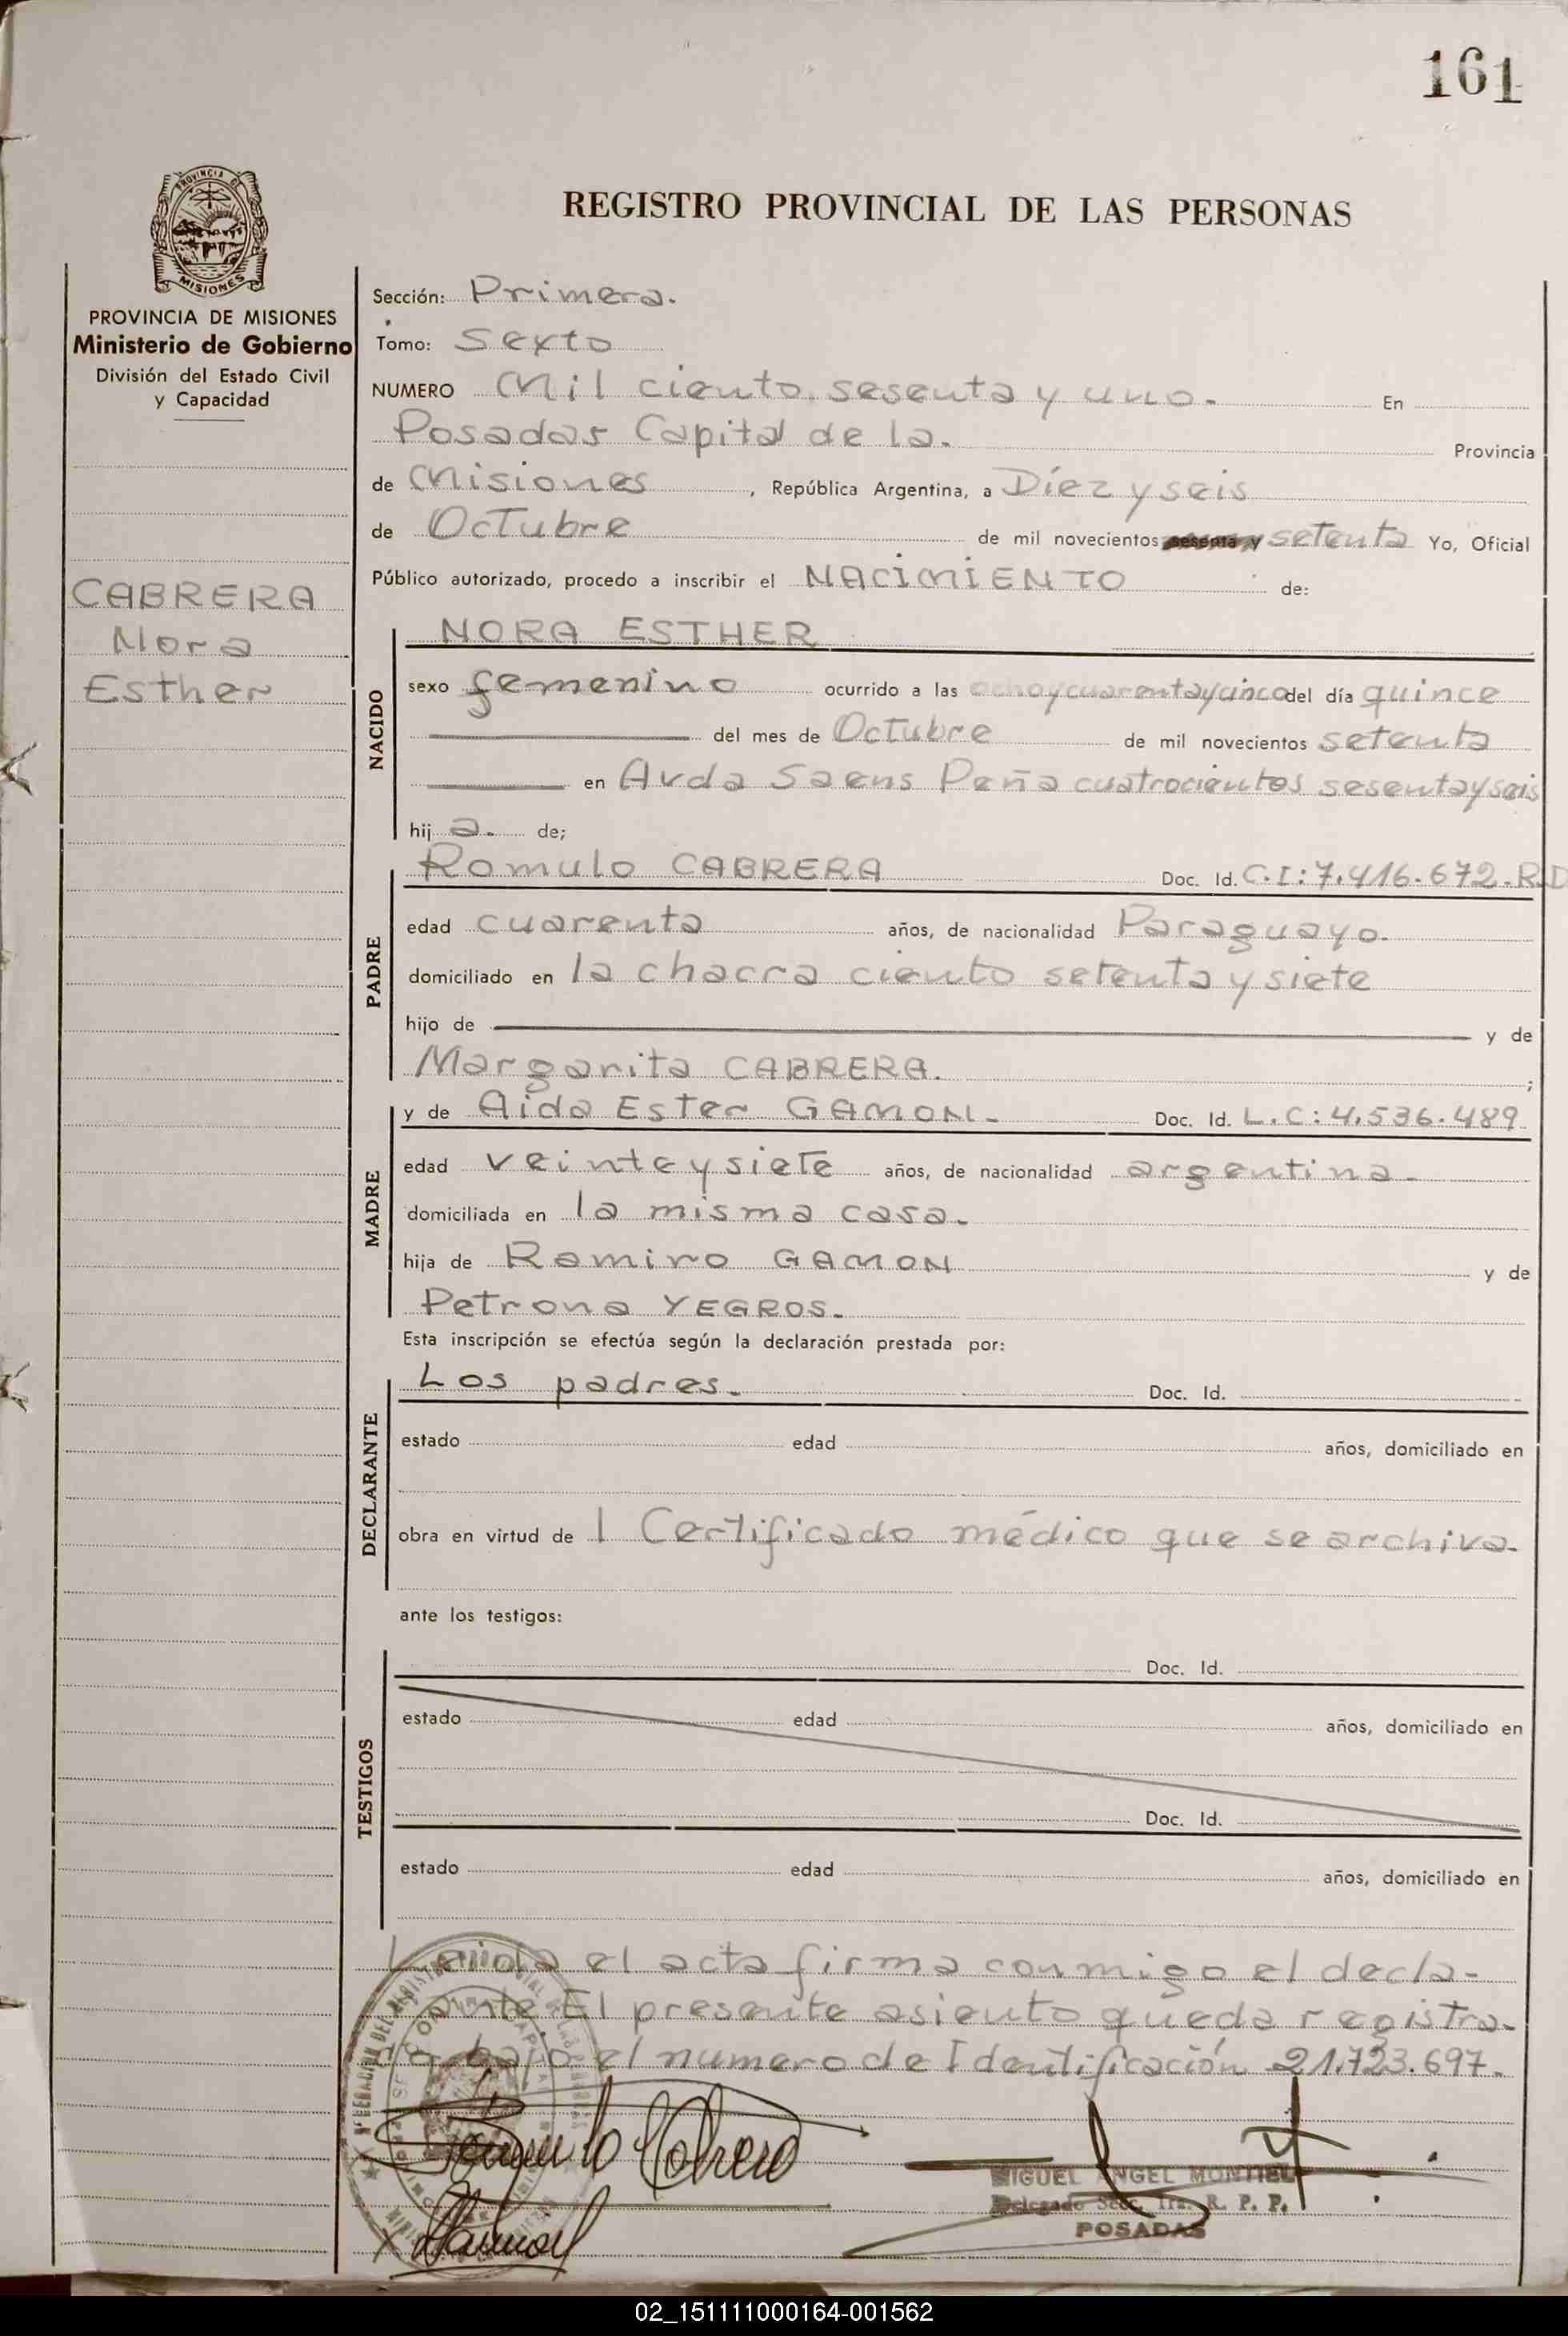 161
PROVINCIA DE
MISIONES
REGISTRO PROVINCIAL DE LAS PERSONAS
PROVINCIA DE MISIONES
Ministerio de Gobierno
División del Estado Civil
y Capacidad
CABRERA
Nora
Esther
Sección: Primera.
Tomo: Sexto
NUMERO Mil ciento sesenta y uno. En
Posadas Capital de la. Provincia
de Misiones, República Argentina, a Díez y seis
de Octubre de mil novecientos sesenta y setenta Yo, Oficial
Público autorizado, procedo a inscribir el NACIMIENTO de:
NACIDO
NORA ESTHER
sexo femenino ocurrido a las ochoycuarentaycinco del día quince
del mes de Octubre de mil novecientos setenta
en Avda Saens Peña cuatrocientos sesentayseis
hija. de;
PADRE
Romulo CABRERA Doc. Id. C.I:7.416.672.R.D
edad cuarenta años, de nacionalidad Paraguayo.
domiciliado en la chacra ciento setenta y siete
hijo de y de
Margarita CABRERA. ;
MADRE
y de Aida Ester GAMON. Doc. Id. L.C:4.536.489
edad veinteysiete años, de nacionalidad argentina.
domiciliada en la misma casa.
hija de Ramiro GAMON y de
Petrona YEGROS.
Esta inscripción se efectúa según la declaración prestada por:
DECLARANTE
Los padres. Doc. Id.
estado edad años, domiciliado en
obra en virtud de 1 Certificado médico que se archiva.
ante los testigos:
TESTIGOS
Doc. Id.
estado edad años, domiciliado en
Doc. Id.
estado edad años, domiciliado en
Leida el acta firma conmigo el decla-
rante. El presente asiento queda registra-
do bajo el numero de Identificación 21.723.697.
Romulo Cabrera
MIGUEL ANGEL MONTIEL
Delegado Secc. 1ra. R. P. P.
POSADAS
02_151111000164-001562